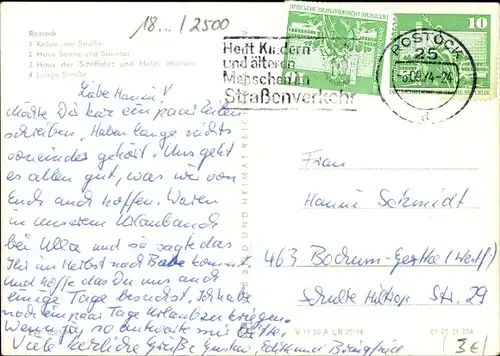 18... / 2500
Rostock
1 Kröpeliner Straße
2 Haus Sonne und Saturn
3 Haus der Schiffahrt und Hotel Warnow
4 Lange Straße
Helft Kindern
und älteren
Menschen im
Straßenverkehr
DEUTSCHE DEMOKRATISCHE REPUBLIK
10
ROSTOCK
25
09.74-24
d
Liebe Hanni!
Möchte Dir kurz ein paar Zeilen
schreiben. Haben lange nichts
voneinander gehört. Uns geht
es allen gut, was wir von
Euch auch hoffen. Waren
in unserem Urlaub auch
bei Ulla und sie sagte das
Ihr im Herbst nach kommt
und hoffe das Du uns auch
einige Tage besuchst. Ich habe
noch ein paar Tage Urlaub zu kriegen.
Wenn ja so antworte mir bitte.
Viele herzliche Grüße Gustav, Edith und
Frau
Hanni Schmidt
463 Bochum-Gerthe (Westf)
Schulte Hiltrop Str. 29
BILD UND HEIMAT
V 11 50 A 1/B 25/14
01 01 31 054
3€